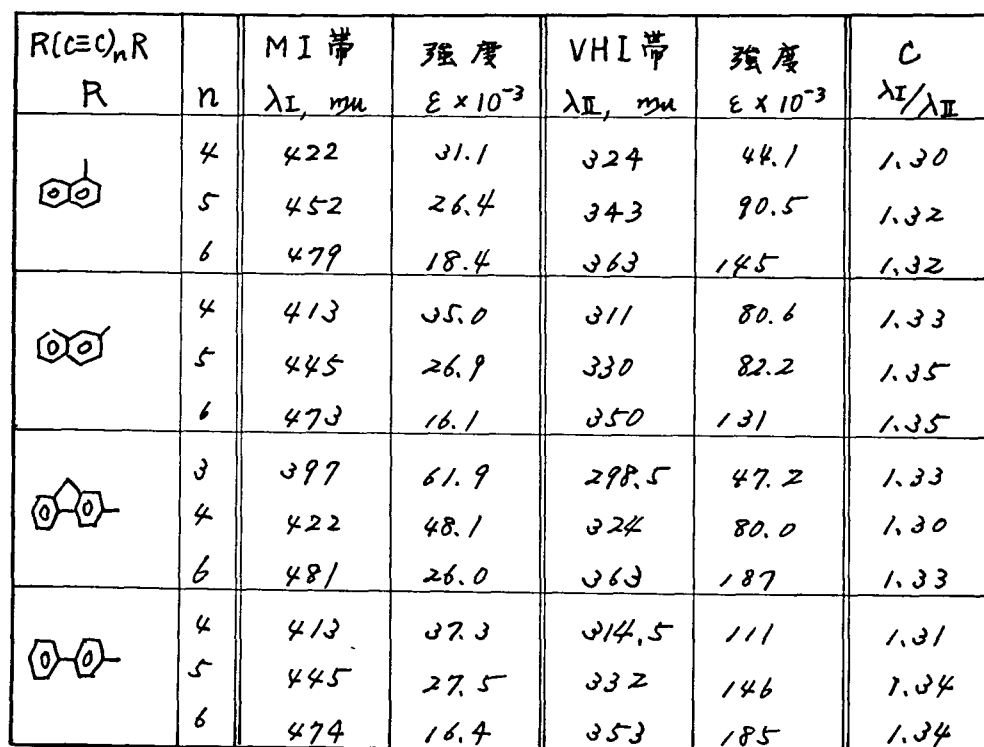 R(C≡C)nR MI帯 強度 VHI帯 強度 C
R n λI, mμ ε×10⁻³ λII, mμ ε×10⁻³ λI/λII
4 422 31.1 324 44.1 1.30
5 452 26.4 343 90.5 1.32
6 479 18.4 363 145 1.32
4 413 35.0 311 80.6 1.33
5 445 26.9 330 82.2 1.35
6 473 16.1 350 131 1.35
3 397 61.9 298.5 47.2 1.33
4 422 48.1 324 80.0 1.30
6 481 26.0 363 187 1.33
4 413 37.3 314.5 111 1.31
5 445 27.5 332 146 1.34
6 474 16.4 353 185 1.34